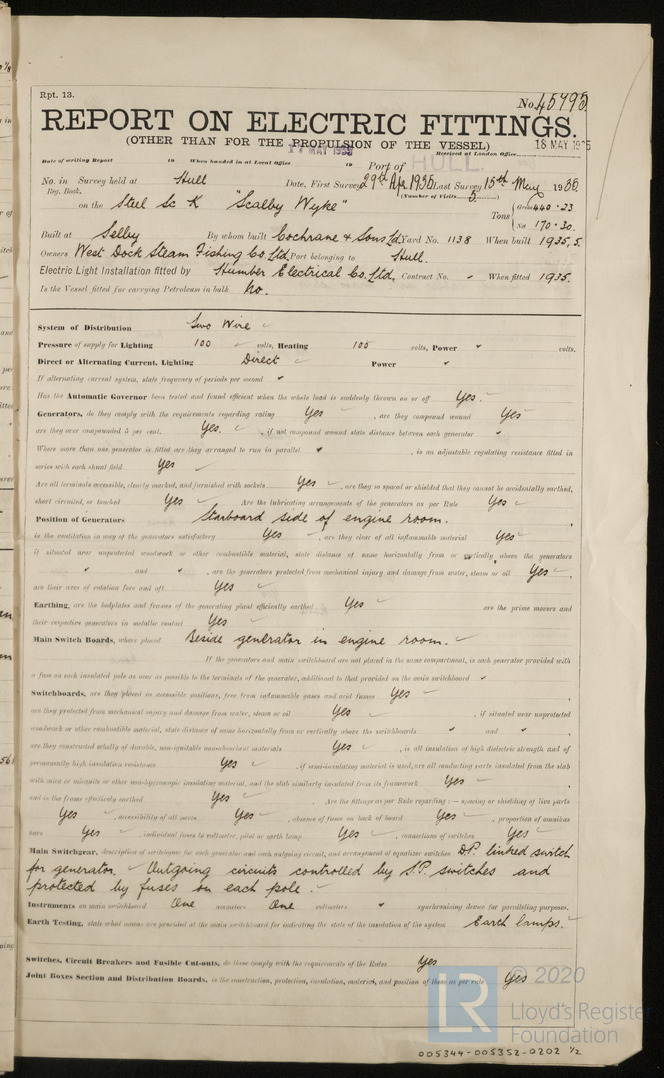 Rpt. 13.
No. 45795
REPORT ON ELECTRIC FITTINGS.
(OTHER THAN FOR THE PROPULSION OF THE VESSEL)
17 MAY 1935
18 MAY 1935
Date of writing Report 19 When handed in at Local Office 19 Port of HULL. Received at London Office
No. in Survey held at Hull Date, First Survey 29th Apl 1935 Last Survey 15th May 1935.
Reg. Book. (Number of Visits 5.)
on the Steel Sc K "Scalby Wyke" Tons { Gross 440.23
Net 170.30.
Built at Selby By whom built Cochrane & Sons Ld. Yard No. 1138 When built 1935, 5.
Owners West Dock Steam Fishing Co. Ltd. Port belonging to Hull.
Electric Light Installation fitted by Humber Electrical Co. Ltd. Contract No. - When fitted 1935.
Is the Vessel fitted for carrying Petroleum in bulk No.
System of Distribution Two Wire
Pressure of supply for Lighting 100 volts, Heating 100 volts, Power " volts.
Direct or Alternating Current, Lighting Direct Power "
If alternating current system, state frequency of periods per second "
Has the Automatic Governor been tested and found efficient when the whole load is suddenly thrown on or off Yes.
Generators, do they comply with the requirements regarding rating Yes, are they compound wound Yes
are they over compounded 5 per cent. Yes., if not compound wound state distance between each generator "
Where more than one generator is fitted are they arranged to run in parallel ", is an adjustable regulating resistance fitted in
series with each shunt field Yes
Are all terminals accessible, clearly marked, and furnished with sockets Yes, are they so spaced or shielded that they cannot be accidentally earthed,
short circuited, or touched Yes Are the lubricating arrangements of the generators as per Rule Yes
Position of Generators Starboard side of engine room.
is the ventilation in way of the generators satisfactory Yes, are they clear of all inflammable material Yes
if situated near unprotected woodwork or other combustible material, state distance of same horizontally from or vertically above the generators
" and ", are the generators protected from mechanical injury and damage from water, steam or oil Yes,
are their axes of rotation fore and aft Yes
Earthing, are the bedplates and frames of the generating plant efficiently earthed Yes are the prime movers and
their respective generators in metallic contact Yes
Main Switch Boards, where placed Beside generator in engine room.
If the generators and main switchboard are not placed in the same compartment, is each generator provided with
a fuse on each insulated pole as near as possible to the terminals of the generator, additional to that provided on the main switchboard "
Switchboards, are they placed in accessible positions, free from inflammable gases and acid fumes Yes
are they protected from mechanical injury and damage from water, steam or oil Yes, if situated near unprotected
woodwork or other combustible material, state distance of same horizontally from or vertically above the switchboards " and "
are they constructed wholly of durable, non-ignitable non-absorbent materials Yes, is all insulation of high dielectric strength and of
permanently high insulation resistance Yes, if semi-insulating material is used, are all conducting parts insulated from the slab
with mica or micanite or other non-hygroscopic insulating material, and the slab similarly insulated from its framework Yes
and is the frame effectively earthed Yes Are the fittings as per Rule regarding:— spacing or shielding of live parts
Yes, accessibility of all parts Yes, absence of fuses on back of board Yes, proportion of omnibus
bars Yes, individual fuses to voltmeter, pilot or earth lamp Yes, connections of switches Yes
Main Switchgear, description of switchgear for each generator and each outgoing circuit, and arrangement of equalizer switches D.P. linked switch
for generator. Outgoing circuits controlled by S.P. switches and
protected by fuses on each pole.
Instruments on main switchboard One ammeters One voltmeters " synchronising device for paralleling purposes.
Earth Testing, state what means are provided at the main switchboard for indicating the state of the insulation of the system Earth lamps.
Switches, Circuit Breakers and Fusible Cut-outs, do these comply with the requirements of the Rules Yes
Joint Boxes Section and Distribution Boards, is the construction, protection, insulation, material, and position of these as per rule Yes
LR
© 2020
Lloyd's Register
Foundation
005344-005352-0202 1/2